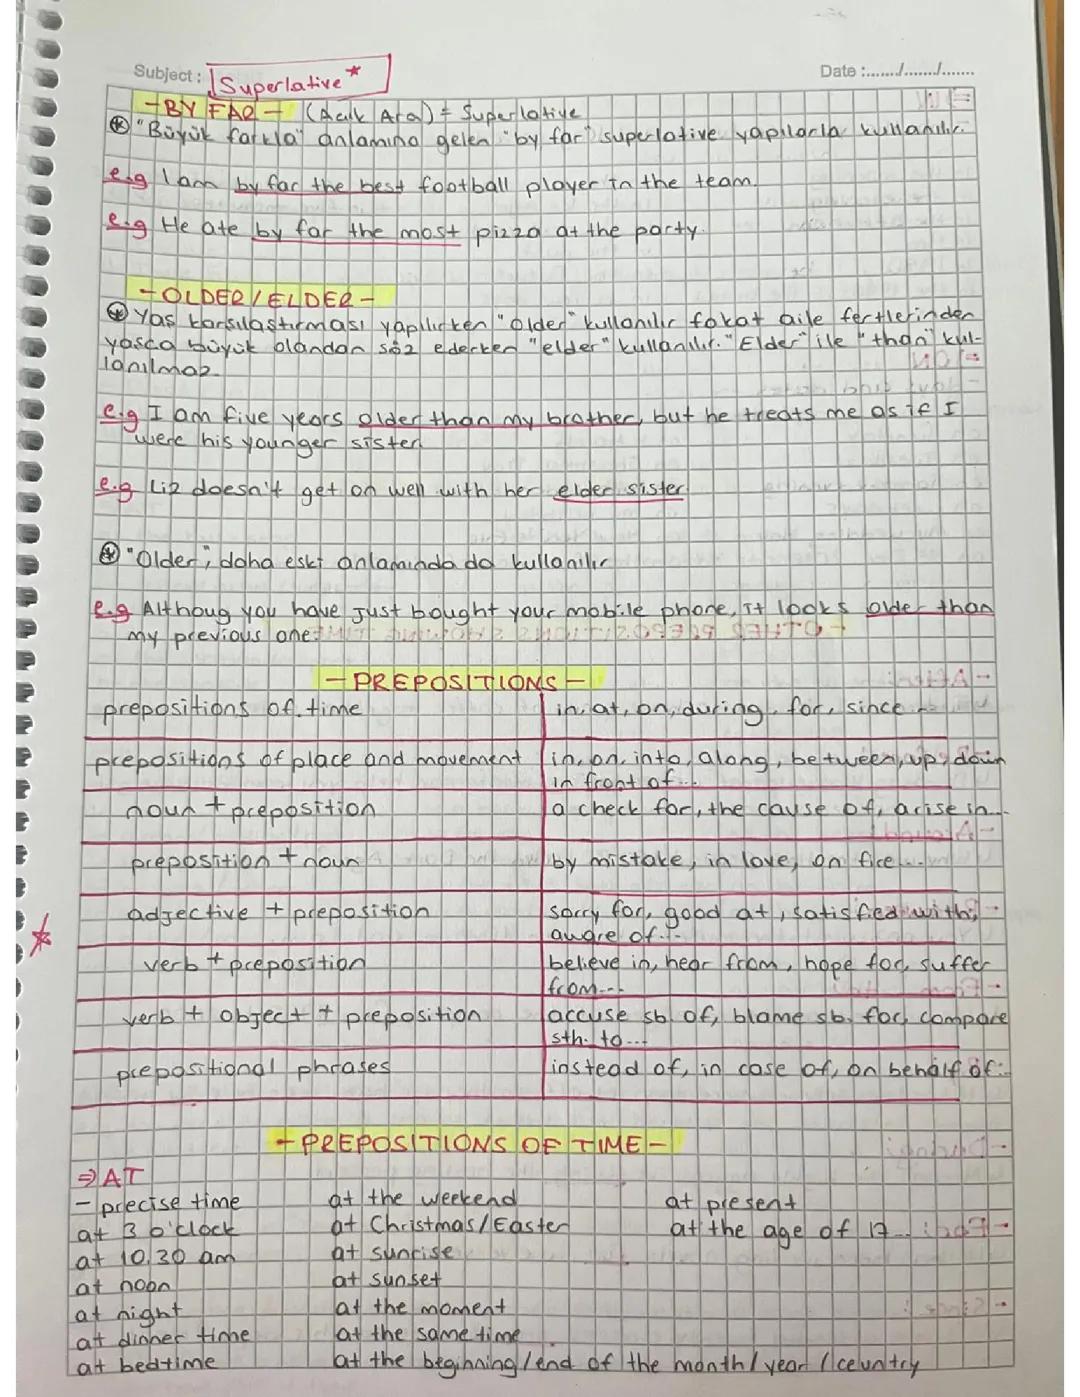 Subject: Superlative *
Date :......./......./.......
- BY FAR - (Açık Ara) + Superlative
"Büyük farkla" anlamına gelen "by far" superlative yapılarla kullanılır.
e.g I am by far the best football player in the team.
e.g He ate by far the most pizza at the party.
- OLDER / ELDER -
Yaş karşılaştırması yapılırken "older" kullanılır fakat aile fertlerinden
yaşca büyük olandan söz ederken "elder" kullanılır. "Elder" ile "than" kul-
lanılmaz.
e.g I am five years older than my brother, but he treats me as if I
were his younger sister.
e.g Liz doesn't get on well with her elder sister.
"Older", daha eski anlamında da kullanılır
e.g Althoug you have just bought your mobile phone, it looks older than
my previous one.
- PREPOSITIONS -
prepositions of time in, at, on, during, for, since...
prepositions of place and movement in, on, into, along, between, up, down
in front of...
noun + preposition a check for, the cause of, arise in...
preposition + noun by mistake, in love, on fire...
adjective + preposition sorry for, good at, satisfied with,
aware of...
verb + preposition believe in, hear from, hope for, suffer
from...
verb + object + preposition accuse sb. of, blame sb. for, compare
sth. to...
prepositional phrases instead of, in case of, on behalf of...
- PREPOSITIONS OF TIME -
⇒ AT
- precise time at the weekend at present
at 3 o'clock at Christmas/Easter at the age of 17...
at 10.30 am at sunrise
at noon at sunset
at night at the moment
at dinner time at the same time
at bedtime at the beginning/end of the month/year/ceuntry